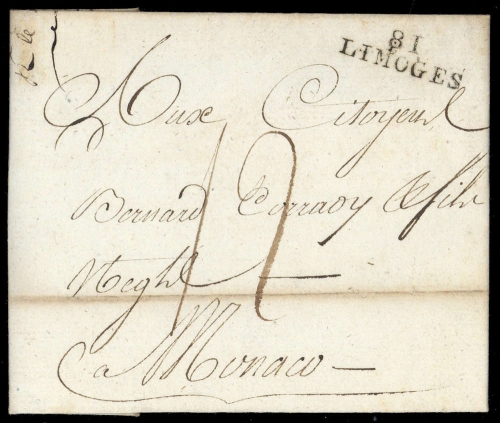 81
LIMOGES
Aux Citoyens
Bernard Corradÿ & fils
Negts
12
a Monaco